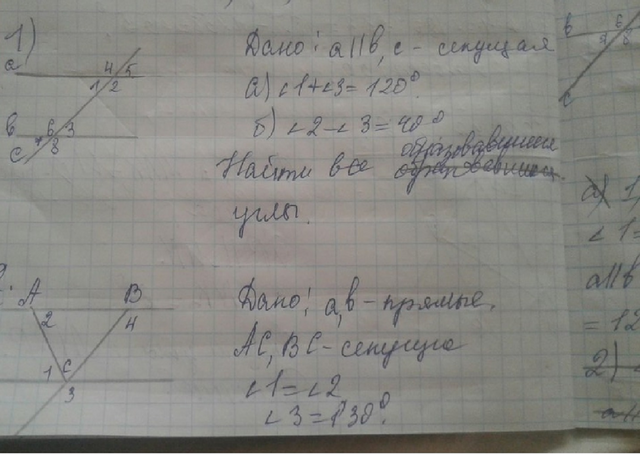 1)
a
4 5
1 2
b
6 3
7 8
c
Дано: a||b, c - секущая
а) ∠1+∠3=120°
б) ∠2-∠3=40°
Найти все образовавшиеся
углы.
A B
2 4
1 C
3
Дано: a, b - прямые.
AC, BC - секущие
∠1=∠2
∠3=130°.
a) 1
∠1=
a||b
=12
2)